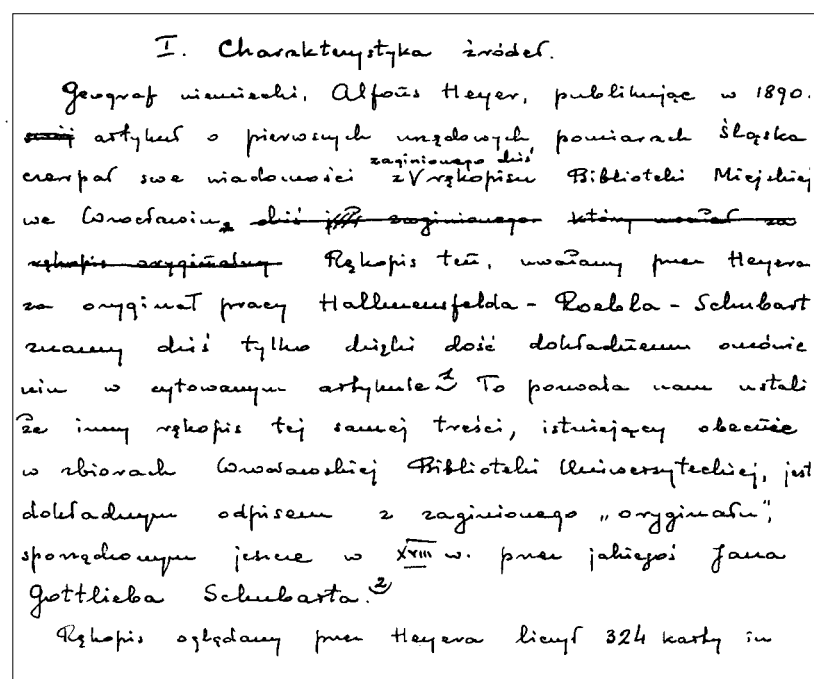 I. Charakterystyka źródeł.
Geograf niemiecki, Alfons Heyer, publikując w 1890.
artykuł o pierwszych urzędowych pomiarach Śląska
zaginionego dziś
czerpał swe wiadomości z rękopisu Biblioteki Miejskiej
we Wrocławiu, dziś już zaginionego który uważał za
rękopis oryginalny Rękopis ten, uważany przez Heyera
za oryginał pracy Hallmensfelda - Roebla - Schubart
znamy dziś tylko dzięki dość dokładnemu omówie
niu w cytowanym artykule 1 To pozwala nam ustali
że inny rękopis tej samej treści, istniejący obecnie
w zbiorach Wrocławskiej Biblioteki Uniwersyteckiej, jest
dokładnym odpisem z zaginionego „oryginału",
sporządzonym jeszcze w XVIII w. przez jakiegoś Jana
Gottlieba Schubarta. 2
Rękopis oglądany przez Heyera liczył 324 karty in